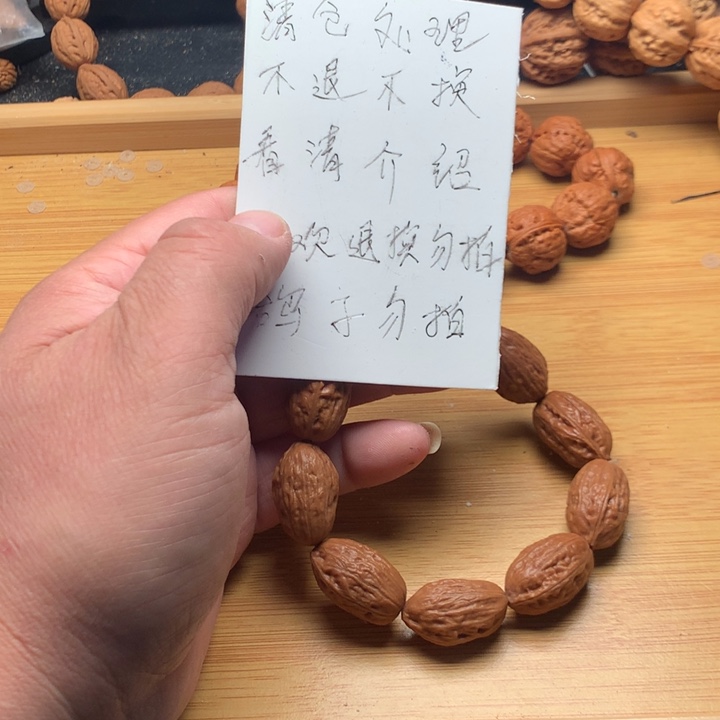 清仓处理
不退不换
看清介绍
欢退换勿拍
鸽子勿拍